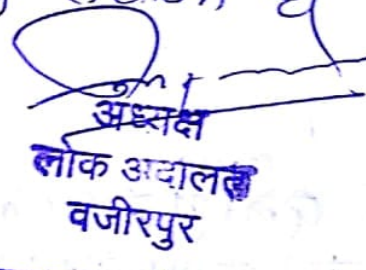 अध्यक्ष
लोक अदालत
वजीरपुर